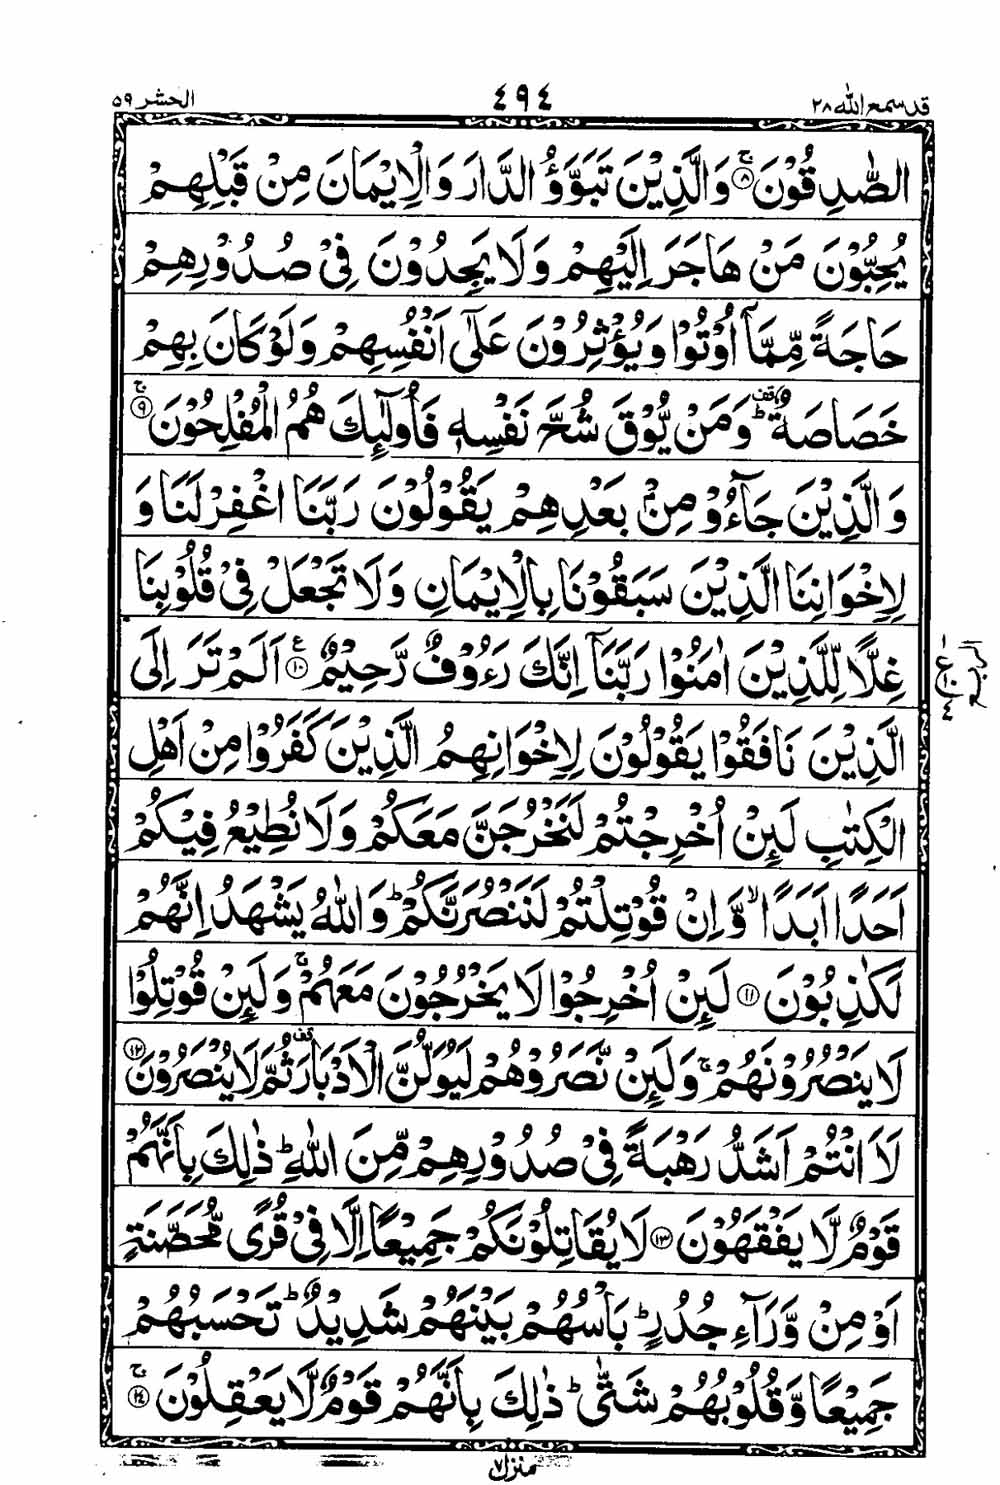 قد سمع الله ٢٨
٤٩٤
الحشر ٥٩
الصّٰدِقُوْنَ ۚ﴿۸﴾ وَالَّذِيْنَ تَبَوَّؤُ الدَّارَ وَالْاِيْمَانَ مِنْ قَبْلِهِمْ
يُحِبُّوْنَ مَنْ هَاجَرَ اِلَيْهِمْ وَلَا يَجِدُوْنَ فِيْ صُدُوْرِهِمْ
حَاجَةً مِّمَّآ اُوْتُوْا وَيُؤْثِرُوْنَ عَلٰٓى اَنْفُسِهِمْ وَلَوْ كَانَ بِهِمْ
خَصَاصَةٌ ؕ۫ وَمَنْ يُّوْقَ شُحَّ نَفْسِهٖ فَاُولٰٓئِكَ هُمُ الْمُفْلِحُوْنَ ۚ﴿۹﴾
وَالَّذِيْنَ جَآءُوْ مِنْۢ بَعْدِهِمْ يَقُوْلُوْنَ رَبَّنَا اغْفِرْ لَنَا وَ
لِاِخْوَانِنَا الَّذِيْنَ سَبَقُوْنَا بِالْاِيْمَانِ وَلَا تَجْعَلْ فِيْ قُلُوْبِنَا
غِلًّا لِّلَّذِيْنَ اٰمَنُوْا رَبَّنَآ اِنَّكَ رَءُوْفٌ رَّحِيْمٌ ﴿۱۰﴾ ع اَلَمْ تَرَ اِلَى
الَّذِيْنَ نَافَقُوْا يَقُوْلُوْنَ لِاِخْوَانِهِمُ الَّذِيْنَ كَفَرُوْا مِنْ اَهْلِ
الْكِتٰبِ لَئِنْ اُخْرِجْتُمْ لَنَخْرُجَنَّ مَعَكُمْ وَلَا نُطِيْعُ فِيْكُمْ
اَحَدًا اَبَدًا ۙ وَّاِنْ قُوْتِلْتُمْ لَنَنْصُرَنَّكُمْ ؕ وَاللّٰهُ يَشْهَدُ اِنَّهُمْ
لَكٰذِبُوْنَ ﴿۱۱﴾ لَئِنْ اُخْرِجُوْا لَا يَخْرُجُوْنَ مَعَهُمْ ۚ وَلَئِنْ قُوْتِلُوْا
لَا يَنْصُرُوْنَهُمْ ۚ وَلَئِنْ نَّصَرُوْهُمْ لَيُوَلُّنَّ الْاَدْبَارَ ۫ ثُمَّ لَا يُنْصَرُوْنَ ﴿۱۲﴾
لَاَانْتُمْ اَشَدُّ رَهْبَةً فِيْ صُدُوْرِهِمْ مِّنَ اللّٰهِ ؕ ذٰلِكَ بِاَنَّهُمْ
قَوْمٌ لَّا يَفْقَهُوْنَ ﴿۱۳﴾ لَا يُقَاتِلُوْنَكُمْ جَمِيْعًا اِلَّا فِيْ قُرًى مُّحَصَّنَةٍ
اَوْ مِنْ وَّرَآءِ جُدُرٍ ؕ بَاْسُهُمْ بَيْنَهُمْ شَدِيْدٌ ؕ تَحْسَبُهُمْ
جَمِيْعًا وَّقُلُوْبُهُمْ شَتّٰى ؕ ذٰلِكَ بِاَنَّهُمْ قَوْمٌ لَّا يَعْقِلُوْنَ ۚ﴿۱٤﴾
منزل ۷